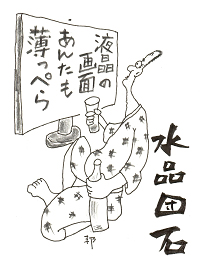 液晶の
画面
あんたも
薄っぺら
水品団石
邦